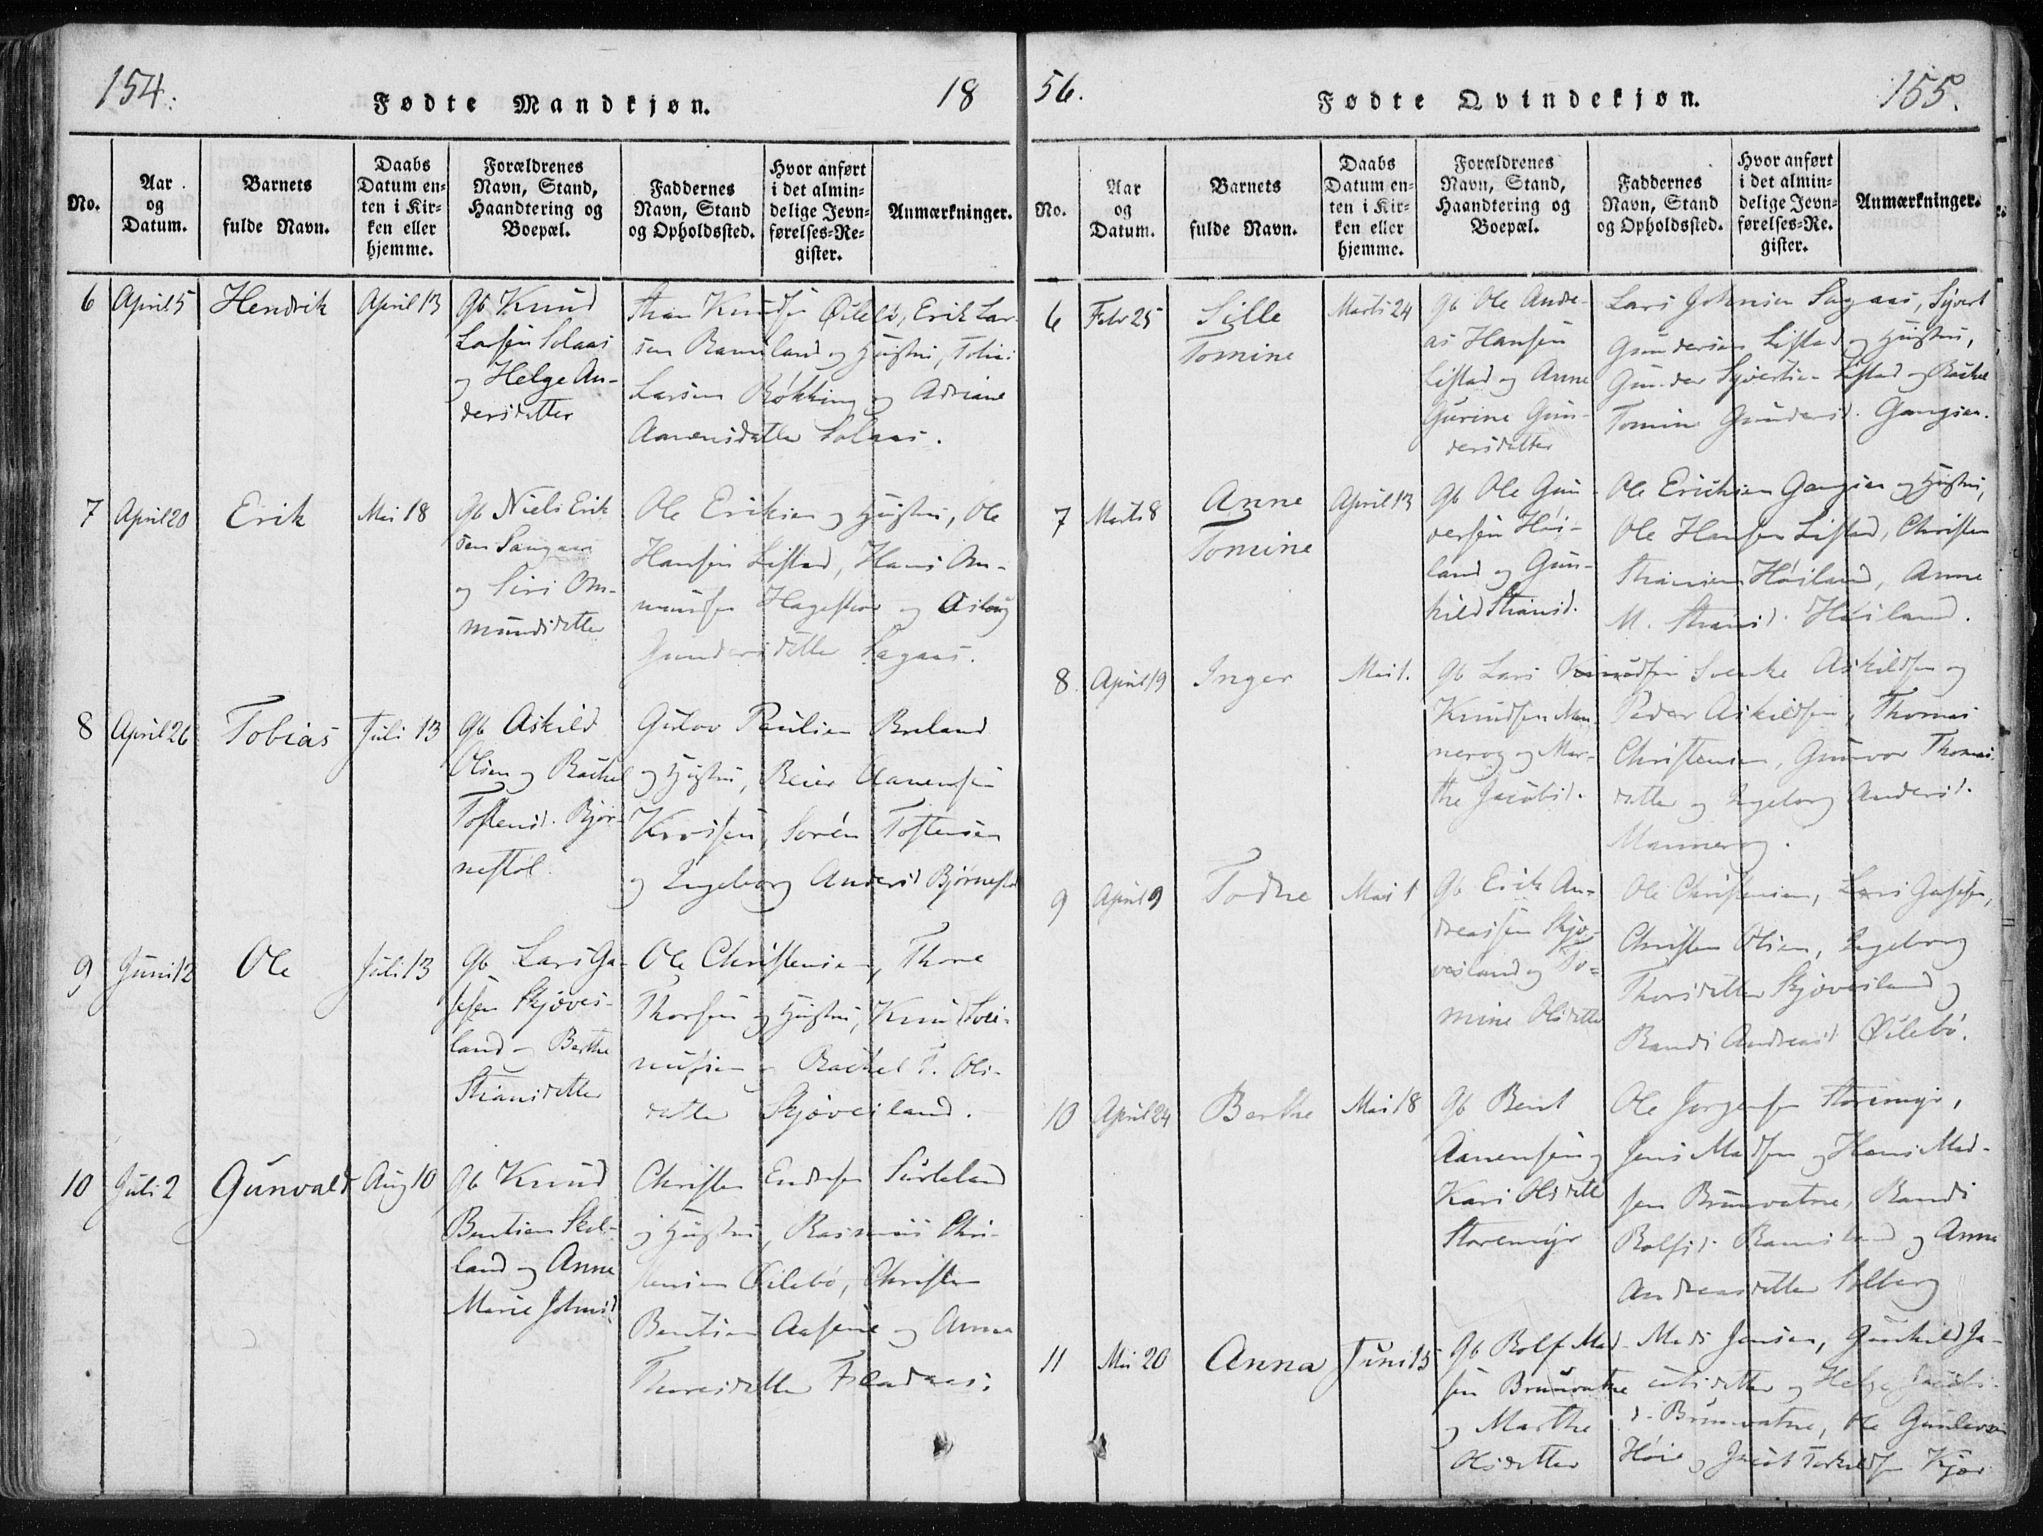 154.
Fødte Mandkjøn.
18
No.
Aar
og
Datum.
Barnets
fulde Navn.
Daabs
Datum en-
ten i Kir-
ken eller
hjemme.
Forældrenes
Navn, Stand,
Haandtering og
Boepæl.
Faddernes
Navn, Stand
og Opholdssted.
Hvor anført
i det almin-
delige Jevn-
førelses-Re-
gister.
Anmærkninger.
6
April 5
Hendrik
April 13
Gb Knud
Larsen Solaas
og Helge An-
dersdatter
Knudsen Øilebø, Erik Lar-
sen Ramsland og Hustru, Tobias
Larsen Røkking og Adriane
Aanensdatter Solaas.
7
April 20
Erik
Mai 18
Gb Niels Erik
sen Saugaas
og Siri Om-
mundsdatter
Ole Eriksen og Hustru, Ole
Hansen Listad, Hans Om-
mundsen og Asloug
Gundersdatter Sagaas.
8
April 26
Tobias
Juli 13
Gb Askild
Olsen og Rachel
Tostensd. Bjør-
nestøl.
Gulov Paulsen Breland
og Hustru, Reier Aanensen
Søren Tostensen
og Ingeborg Andersd Bjørnestøl
9
Juni 12
Ole
Juli 13
Gb Lars Ga-
sesen Skjøves-
land og Berthe
Stiansdatter
Ole Christensen, Thore
Thorsen og Hustru, Knud Svei-
nusen og Rachel T. Ols-
datter Skjøveiland.
10
Juli 2
Gunvald
Aug 10
Gb Knud
Bentsen Skol-
land og Anne
Marie Johnsd.
Christen Endresen Surteland
og Hustru, Rasmus Chri-
stensen Øilebø, Christen
Bentsen Aasene og Anna
Thoresdatter
56.
Fødte Qvindekjøn.
155.
No.
Aar
og
Datum.
Barnets
fulde Navn.
Daabs
Datum en-
ten i Kir-
ken eller
hjemme.
Forældrenes
Navn, Stand,
Haandtering og
Boepæl.
Faddernes
Navn, Stand
og Opholdssted.
Hvor anført
i det almin-
delige Jevn-
førelses-Re-
gister.
Anmærkninger.
6
Febr 25
Sille
Tomine
Marts 24
Gb Ole Andre-
as Hansen
Listad og Anne
Gurine Gun-
dersdatter
Lars Johnsen Sagaas, Syvert
Gundersen Listad og Hustru,
Gunder Syvertsen Listad og Rachel
Tomine Gundersd.
7
Marts 8
Anne
Tomine
April 13
Gb Ole Gun-
versen Høi-
land og Gun-
hild Stiansd.
Ole Ericksen og Hustru,
Ole Hansen Listad, Christen
Stiansen Høiland, Anne
M. Stiansd. Høiland.
8
April 19
Inger
Mai 1.
Gb Lars
Knudsen Man-
nerog og Mar-
the Jacobsd.
Svenke Askildsen og
Peder Askildsen, Thomas
Christensen, Gunvor Thomas-
datter og Ingeborg Andersd.
Mannerog.
9
April 9
Todne
Mai 1
Gb Erik An-
dreassen Skjø-
vesland og To-
mine Olsdatter
Ole Christensen, Lars Gasesen,
Christen Olsen, Ingeborg
Thorsdatter Skjøvesland og
Randi Andreasd. Øilebø.
10
April 24
Berthe
Mai 18
Gb Bent
Aanensen og
Kari Olsdatter
Storemyr
Ole Jørgensen Storemyr,
Jens Madsen og Hans Mad-
sen Brunvatne, Randi
Rolfsd. Ramsland og Anne
Andreasdatter Solberg
11
Mai 20
Anna
Juni 15
Gb Rolf Mad-
sen Brunvatne
og Marthe
Olsdatter
Mads Jensen, Gunhild Ja-
cobsdatter og Helge Jacobs-
d. Brunvatne, Ole Gunlevsen
Høie og Jacob Torkildsen